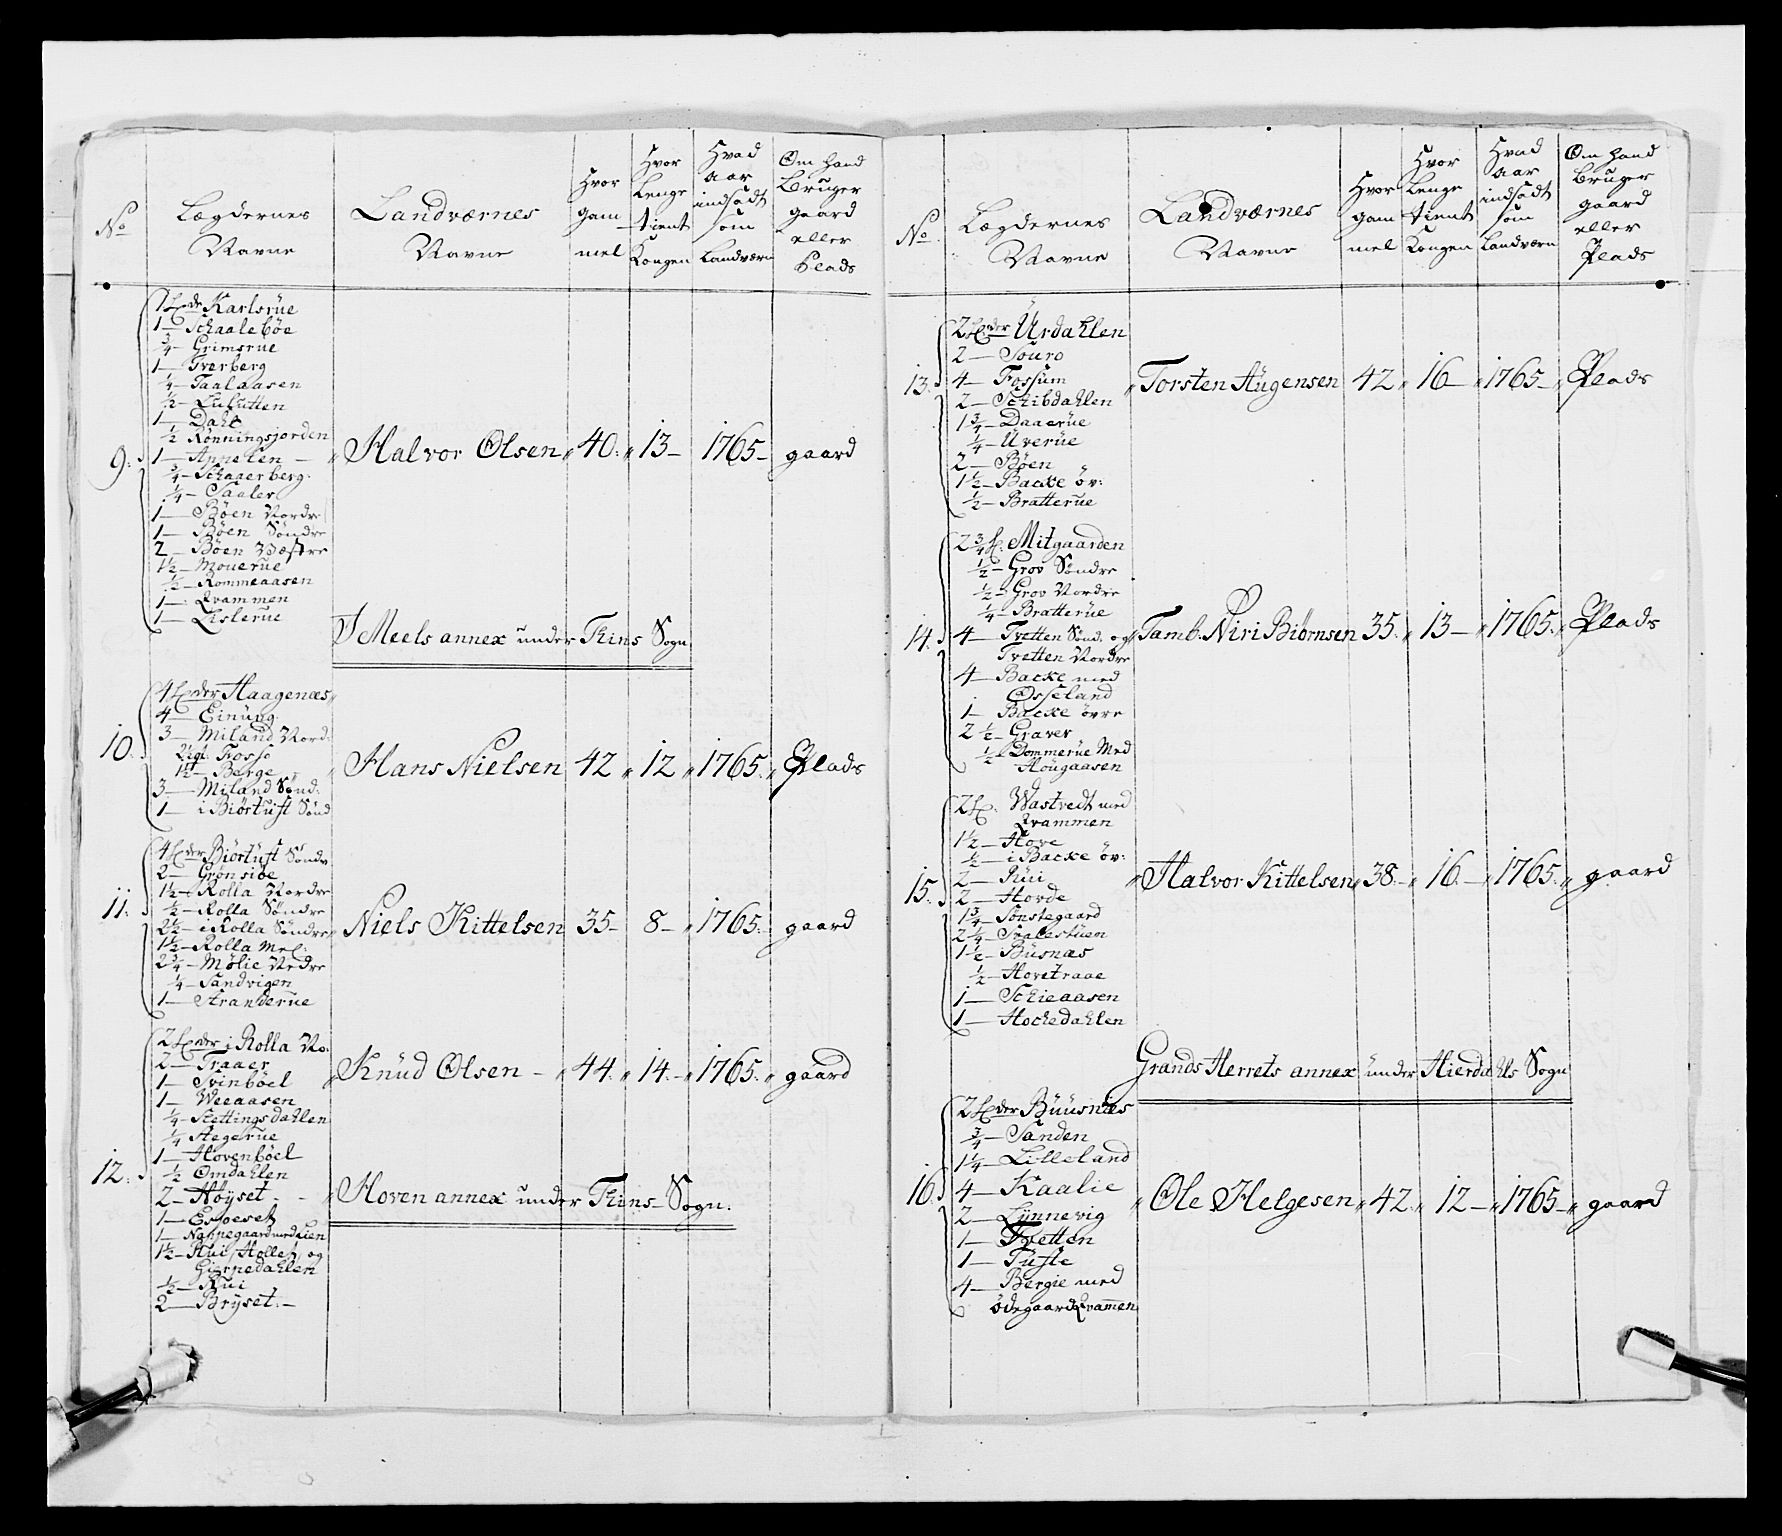 No
Lægdernes
Navne
Landværnes
Navne
Hvor
gam
mel
Hvor
Lenge
tient
Kongen
Hvad
aar
indsadt
som
Landværn
Om hand
Bruger
gaard
eller
Plads
9.
1 Hder Karlsrüe
1 — Schaaleböe
3/4 — Grimsrüe
1 — Tverberg
1/4 — Taalaasen
1/2 — Lübütten
1 — Dahl
1/2 Rönningsjorden
1 — Appelen —
3/4 — Schaaerberg.
1/4 — Saaler
1 — Böen Nordre
1 — Böen Söndre
2 — Böen Væstre
1½ — Mouerüe
1/2 — Rommeaasen
1 — Qvammen
1 — Lislerüe
Halvor Olsen 40. 13 — 1765 — gaard
I Meels annex under Tins Sogn
10.
4 Hder Haagenæs
4 — Einüng
3 — Miland Nord:
Fosso
1½ — Berge
3 — Miland Sönd:
1 — i Biörtüft Sönd
Hans Nielsen 42 12 1765. Plads
11.
4 Hder Biörtüft Söndr.
2 — Grönsiöe
1½ — Rolla Nordre
1/2 — Rolla Söndre
2½ — i Rolla Söndre
1½ — Rolla Mel:
2¾ — Mölie Nedre
1/4 — Sandvigen
1 — Stranderüe
Niels Kittelsen 35 — 8 — 1765. gaard
12.
2 Hder i Rolla No:
2 — Traaer
1 — Svinböel
1 — Weeaasen
1/4 — Stettingsdahlen
1/4 Hegerüe
1 — Hovenböel
1/2 Omdahlen
2 — Höyset
1 — Espeset
1 — Nappegaard med Lien
1½ — Rui, Hollet, og
Gierpedahlen
1/2 — Rui
2 — Bryset. —
Knüd Olsen — 44. 14. — 1765. gaard
Hoven annex under Tins — Sogn.
No.
Lægdernes
Navne
Landværnes
Navne
Hvor
gam
mel
Hvor
Lenge
tient
Kongen
Hvad
aar
indsadt
som
Landværn
Om hand
Bruger
gaard
eller
Plads
13.
2 Hder Ürdahlen
2 — Souro
4 — Fossum
2 — Schibdahlen
1¾ — Daaerüe
1/4 — Üverüe
2 — Böen
1½ — Backe öv:
1/2 — Bratterüe
Torsten Aügensen 42 16 — 1765 — Plads
14.
2¾ H. Mitgaarden
1/2 — Grov Söndre
1/2 — Grov Nordre
1/4 — Bratterüe
4 — Tvetten Sønd. og
Tvetten Nordre
4 — Backe med
Osseland
1 — Backe övre
2½ — Graver
1/2 Dommerüe Med
Hougaasen
Tamb. Niri Biörnsen 35. 13 — 1765. Plads
15.
2 H. Wastvedt med
Qvammen
1½ — Hove
1/2 — i Backe öv:
2 — Rüi
2 — Hovde
1¾ — Sönstegaard
2¼ — Saalestüen
1½ — Büsnæs
1/2 — Hovetraae
1 — Schieaasen
1 — Hochedahlen
Halvor Kittelsen 38. — 16. — 1765. gaard
Grands Herrets annex under Hierdahls Sogn
16.
2 Hder Büüsnæs
3/4 — Sanden
1¼ — Lilleland
4 — Kaalie
2 — Lÿnnevig
1 — Tvetten
1 — Tüfte
4 — Bergie med
ödegaard Qvamen
Ole Helgesen 42. 12 — 1765 — gaard